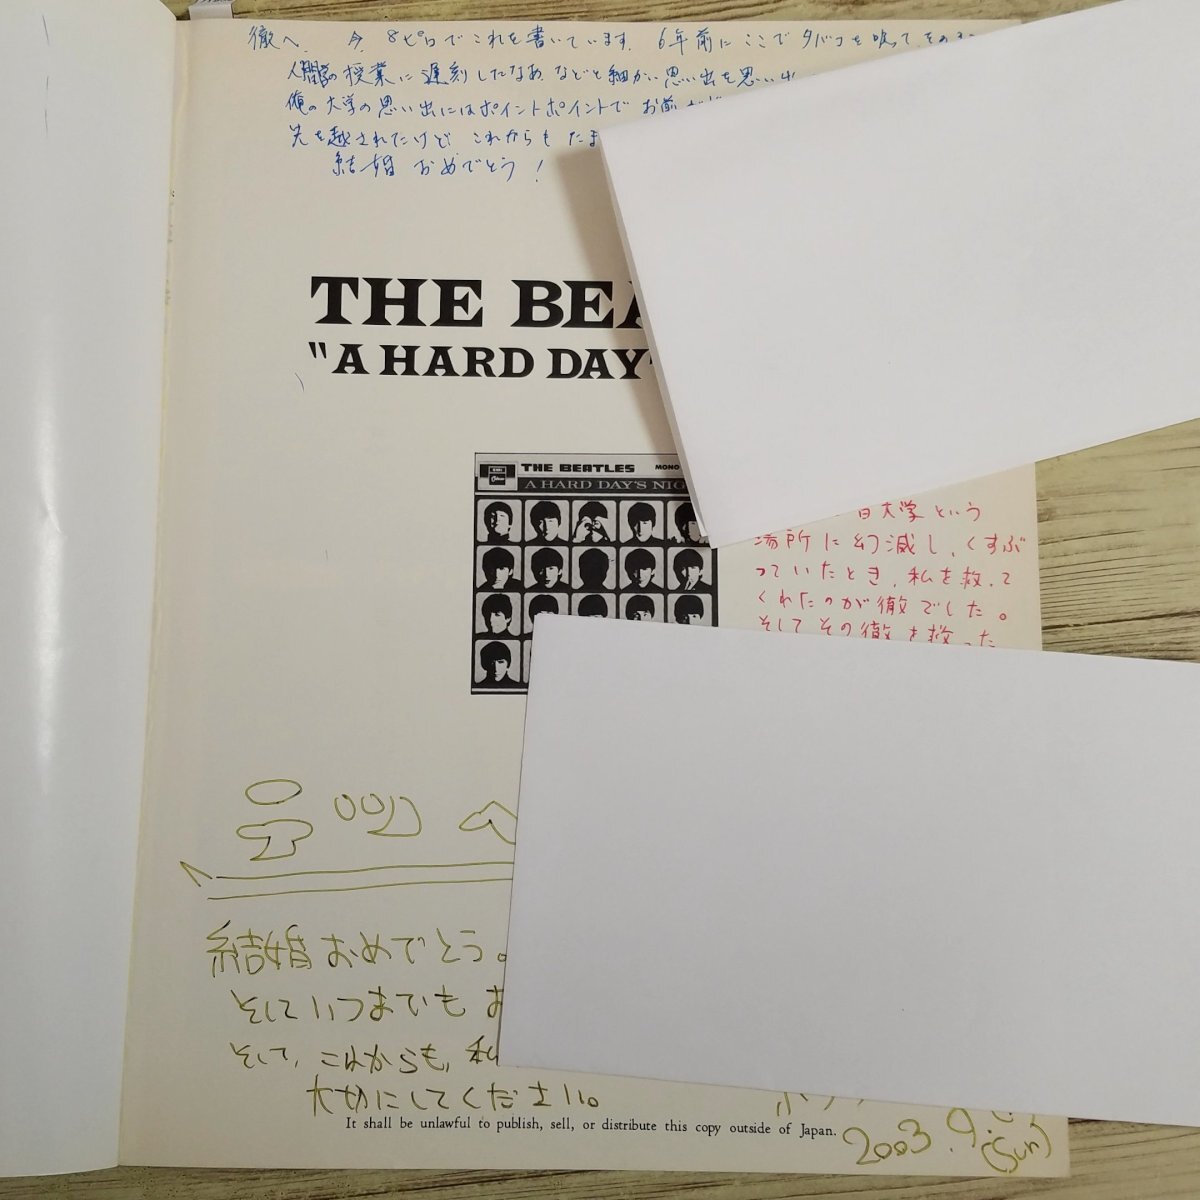 徹へ 今 8ピロでこれを書いています。 6年前にここでタバコを吸って、その
人間の授業に遅刻したなあ などと細かい思い出を思い出
俺の大学の思い出にはポイントポイントで お前が
先を越されたけど これからもたま
結婚 おめでとう!
THE BEA
"A HARD DAY'
THE BEATLES MONO
A HARD DAY'S NIG
日大学という
場所に幻滅し、くすぶ
っていたとき、私を救って
くれたのが徹でした。
そしてその徹を救った
結婚おめでとう。
そしていつまでも お
そして、これからも、私
大切にしてください。
It shall be unlawful to publish, sell, or distribute this copy outside of Japan.
2003. 9.
(Sun)